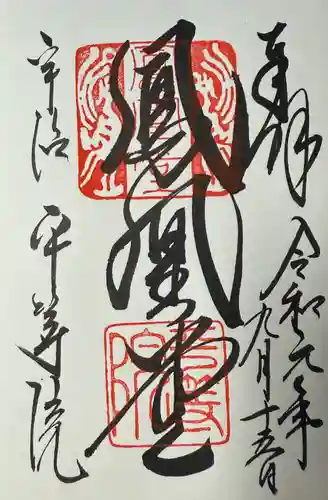 奉拝
令和元年
九月十五日
鳳凰堂
宇治
平等院